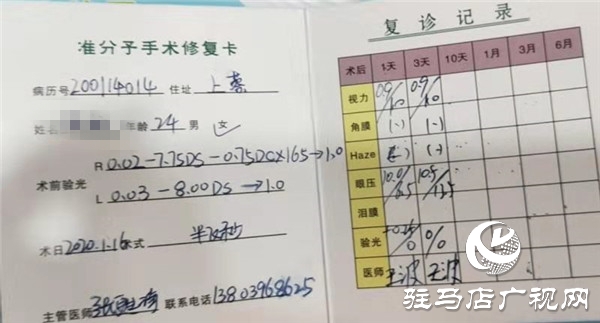 准分子手术修复卡
病历号 200114014 住址 上蔡
姓名 年龄 24 男 女
R 0.02 -7.75DS -0.75DC×165→1.0
术前验光
L 0.03 -8.00DS →1.0
术日 2020.1.16 术式 半飞秒
主管医师 联系电话 13803968625
复诊记录
术后 1天 3天 10天 1月 3月 6月
视力 0.9/1.0 0.9/1.0
角膜 (-) (-)
Haze (-) (-)
眼压 10.0/ 10.5/
泪膜
验光 +0.25/0 0/0
医师 王波 王波
驻马店广视网